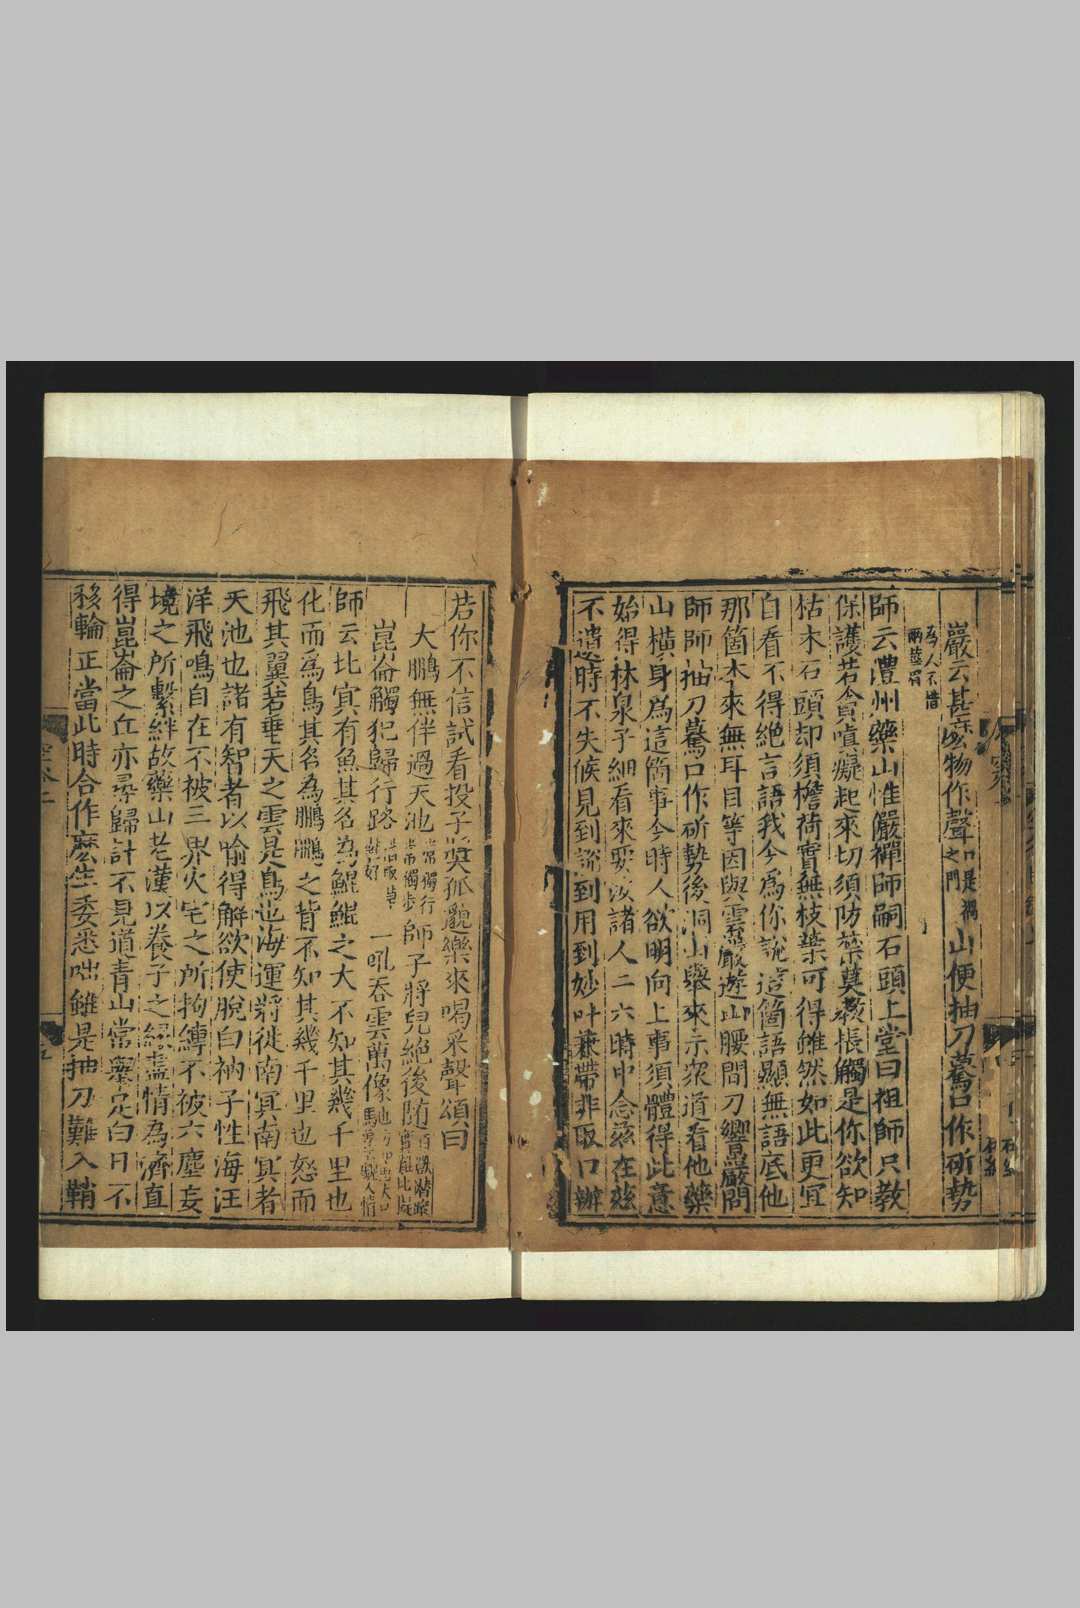 巖云甚麽物作聲口是禍之門山便抽刀驀口作斫勢
為人不惜兩莖眉
師云澧州藥山惟儼禪師嗣石頭上堂曰祖師只教
保護若貪嗔癡起來切須防禁莫教掁觸是你欲知
枯木石頭却須擔荷實無枝葉可得雖然如此更宜
自看不得絕言語我今為你說這箇語顯無語底他
那箇本來無耳目等因與雲巖遊山腰間刀響巖問
師師抽刀驀口作斫勢後洞山舉來示眾道看他藥
山橫身為這箇事今時人欲明向上事須體得此意
始得林泉子細看來要汝諸人二六時中念茲在茲
不遺時不失候見到說到用到妙叶兼帶非取口辦
若你不信試看投子䇿孤觀樂來喝采聲頌曰
大鵬無伴過天池常獨行常獨步師子將兒絕後隨
崑崙觸犯歸行路一吼吞雲萬像
師云北㝠有魚其名為鯤鯤之大不知其幾千里也
化而為鳥其名為鵬鵬之背不知其幾千里也怒而
飛其翼若垂天之雲是鳥也海運將徙南㝠南㝠者
天池也諸有智者以喻得解欲使脫白衲子性海汪
洋飛鳴自在不被三界火宅之所拘縛不被六塵妄
境之所繫絆故藥山老漢以養子之緣盡情為濟直
得崑崙之丘亦尋歸計不見道青山常舉足白日不
移輪正當此時合作麽生委悉咄雖是抽刀難入鞘